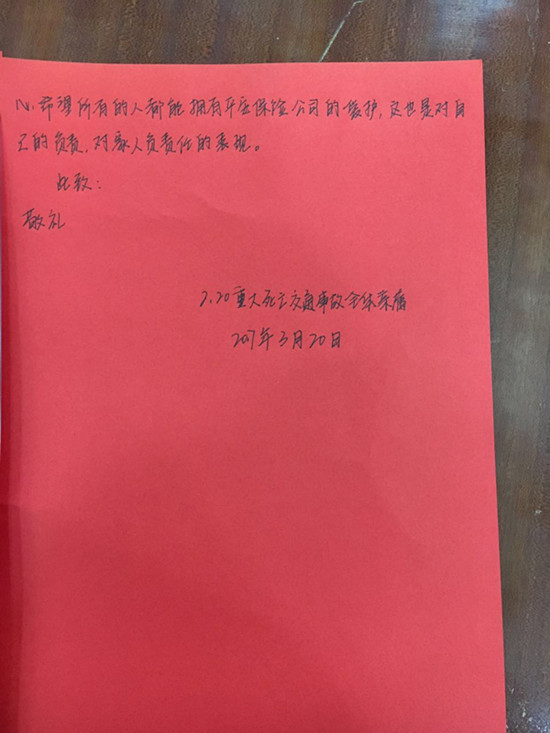 心.希望所有的人都能拥有平安保险公司的援护,这也是对自
己的负责,对家人负责任的表现。
此致:
敬礼
2.20重大死亡交通事故全体家属
2017年3月20日